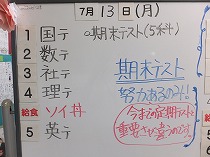 7月13日(月)
1 国テ
○期末テスト(5科)
2 数テ
3 社テ
期末テスト
4 理テ
努力あるのみ!!
給食 ソイ丼
今までの定期テストと
重要さが違うので
5 英テ